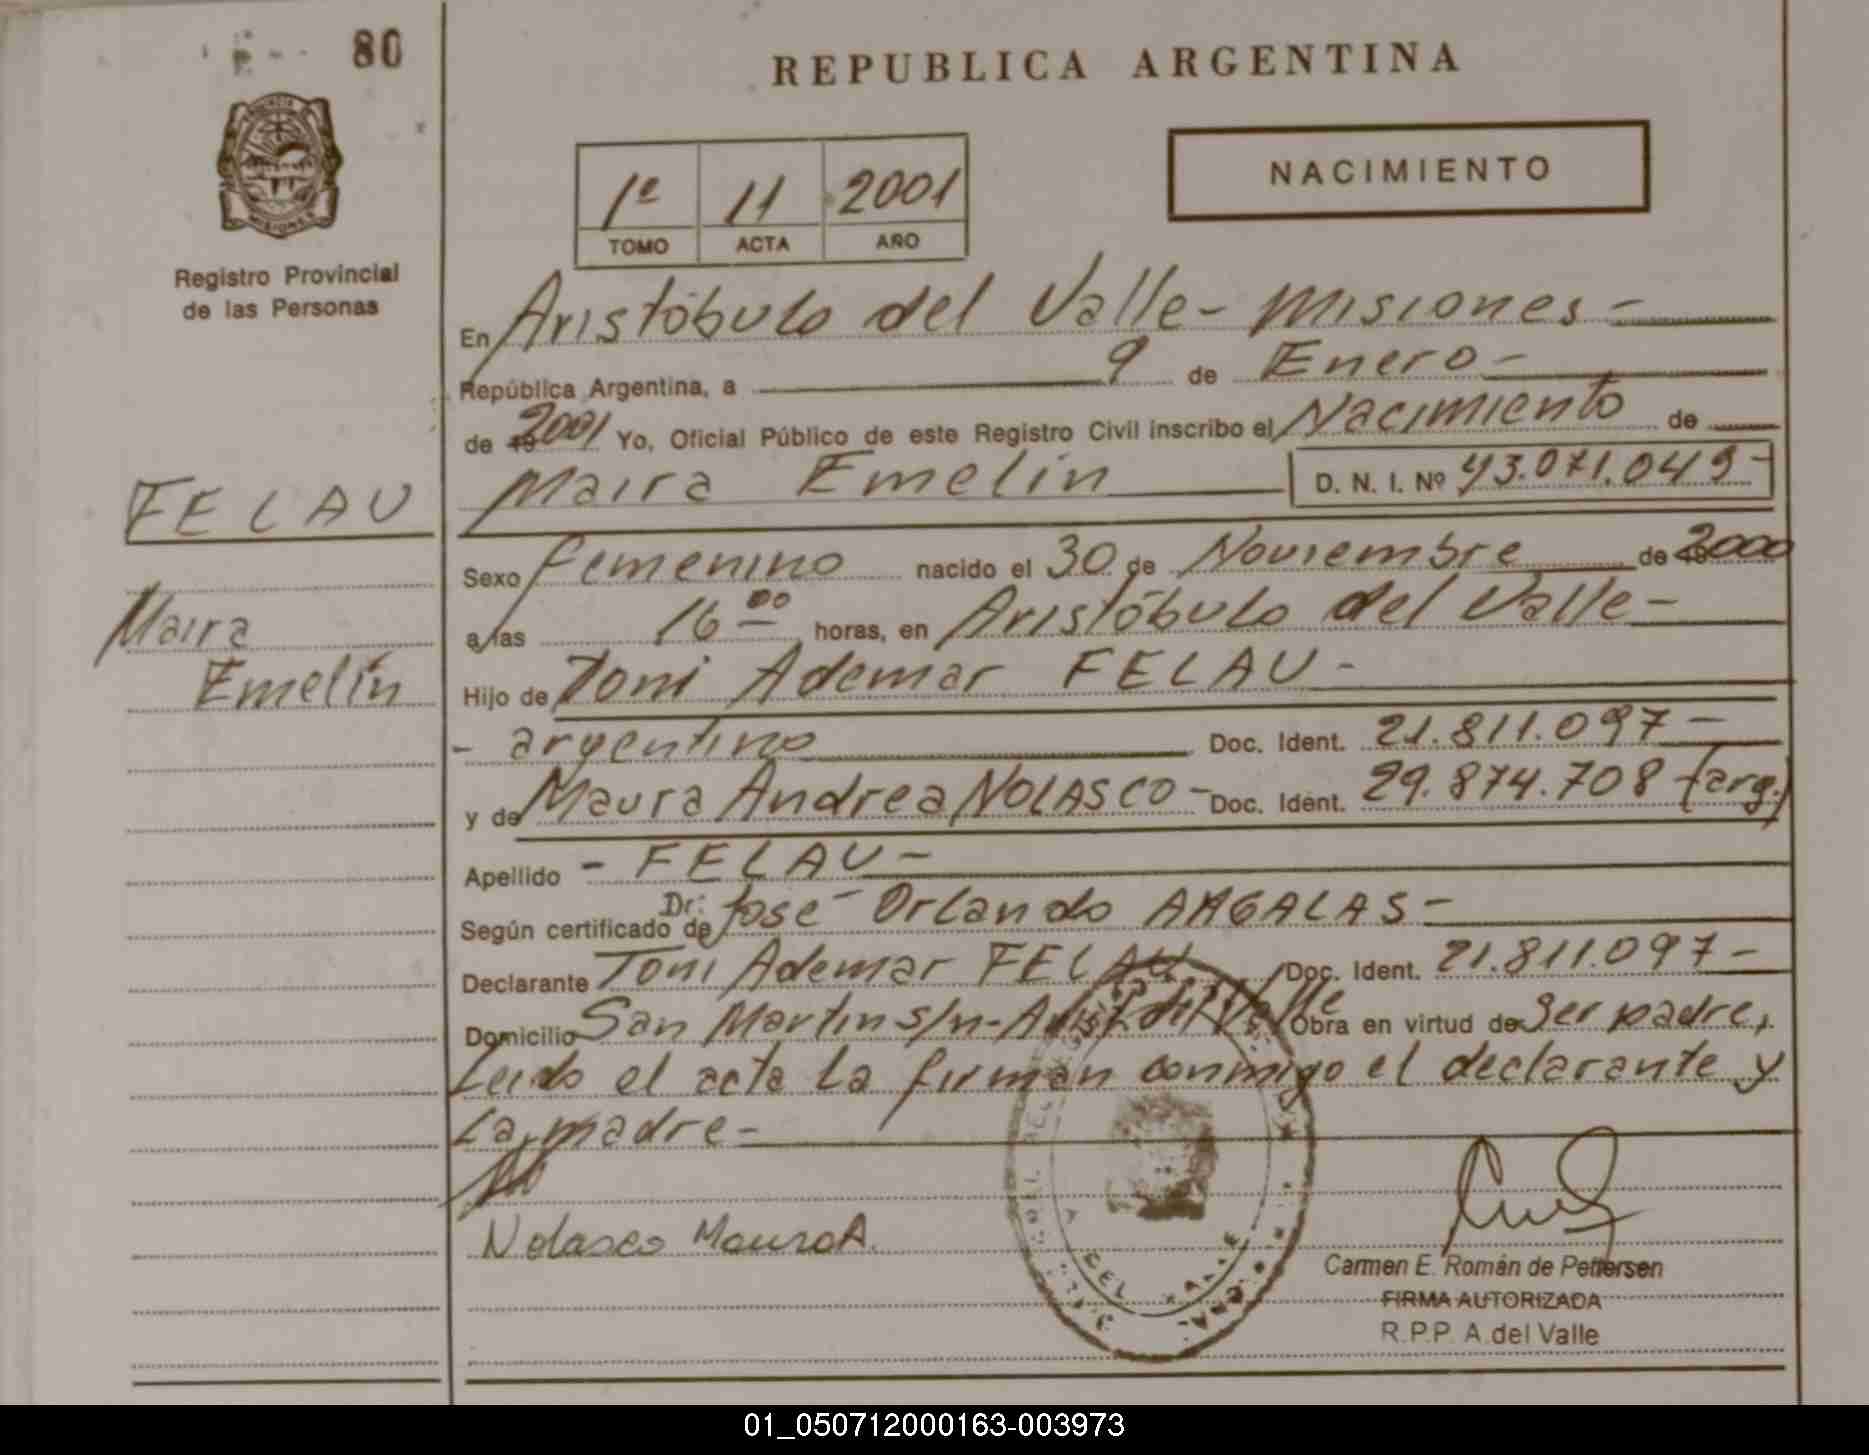 80
REPUBLICA ARGENTINA
MISIONES
Registro Provincial
de las Personas
1º 11 2001
TOMO ACTA AÑO
NACIMIENTO
En Aristóbulo del Valle - Misiones -
República Argentina, a 9 de Enero -
de 19 2001 Yo, Oficial Público de este Registro Civil inscribo el Nacimiento de
Maira Emelin D. N. I. Nº 43.071.049-
FELAU
Maira
Emelín
Sexo femenino nacido el 30 de Noviembre de 19 2000
a las 16 00 horas, en Aristóbulo del Valle -
Hijo de Toni Ademar FELAU -
- argentino Doc. Ident. 21.811.097 -
y de Maura Andrea NOLASCO - Doc. Ident. 29.874.708 (arg.)
Apellido - FELAU -
Según certificado de Dr. José Orlando -
Declarante Toni Ademar FELAU Doc. Ident. 21.811.097 -
Domicilio San Martin s/n - del Valle Obra en virtud de ser padre,
Leído el acta la firman conmigo el declarante y
la madre -
Nolasco Maura A.
DEL VALLE
Carmen E. Román de Pettersen
FIRMA AUTORIZADA
R.P.P. A.del Valle
01_050712000163-003973